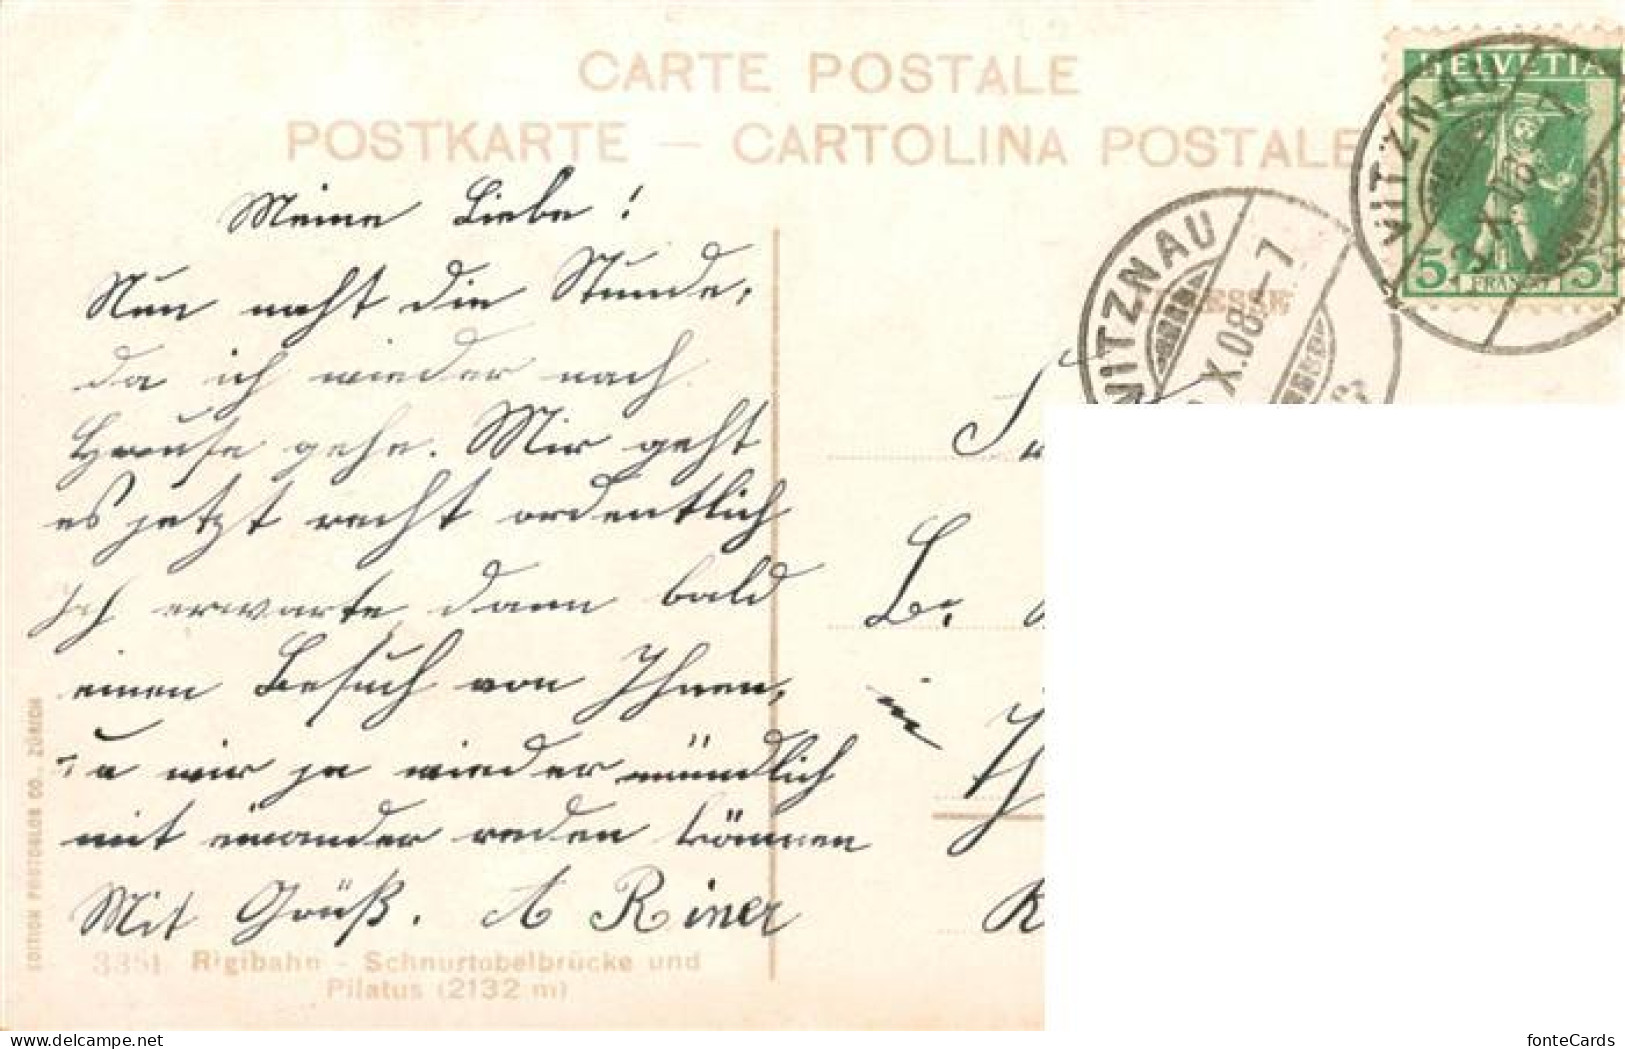 CARTE POSTALE
POSTKARTE — CARTOLINA POSTALE
HELVETIA
VITZNAU
X.08.-7
5 5
FRANCO
VITZNAU
X.08.-7
Meine Liebe!
Nun naht die Stunde,
da ich wieder nach
Hause gehe. Mir geht
es jetzt recht ordentlich
Ich erwarte dann bald
einen Besuch von Ihnen,
wir ja wieder mündlich
mit einander reden können
Mit Grüß. A Riner
B.
in
EDITION PHOTOGLOB CO., ZÜRICH
3351 Rigibahn - Schnurtobelbrücke und
Pilatus (2132 m)
fonteCards